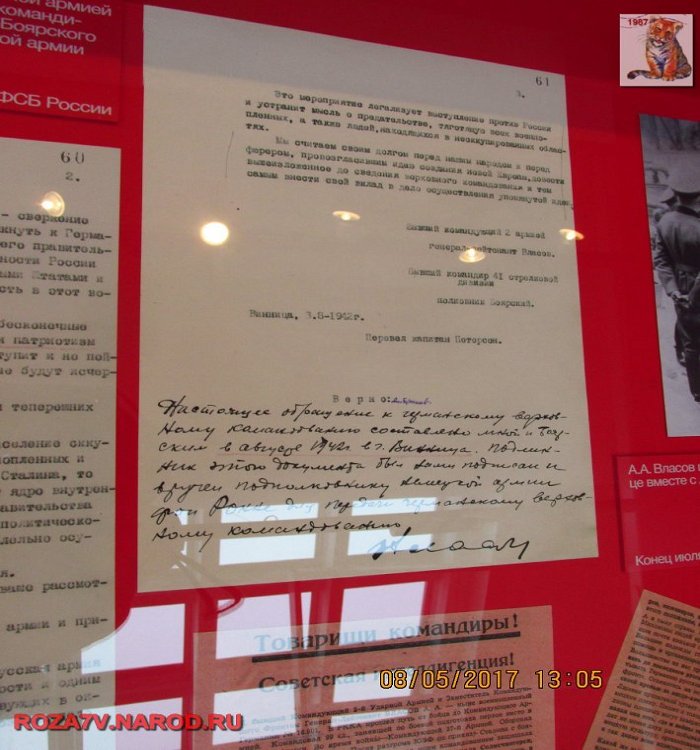 ой армией
команди-
Боярского
ой армии
ФСБ России
60
2.
- свержение
кнуть к Герма-
его правитель-
ности России
ыми Штатами и
сть в этот во-
бесконечные
и патриотизм
тупит и не пой-
не будут исчер-
теперешних
аселение окку-
нопленных и
Сталина, то
ядро внутрен-
равительства
политическо-
дельно осу-
ся.
ваше рассмот-
армии и при-
усская армия
ости и одним
вующих в оп-
61
3.
Это мероприятие легализует выступление против России
и устранит мысль о предательстве, тяготящую всех военно-
пленных, а также людей, находящихся в неоккупированных облас-
тях.
Мы считаем своим долгом перед нашим народом и перед
фюрером, провозгласившим идею создания новой Европы, довести
вышеизложенное до сведения верховного командования и тем
самым внести свой вклад в дело осуществления упомянутой идеи.
Бывший командующий 2 армией
генерал-лейтенант Власов.
Бывший командир 41 стрелковой
дивизии
полковник Боярский.
Винница, 3.8-1942г.
Перевел капитан Петерсон.
Верно:
Настоящее обращение к германскому верхов-
ному командованию составлено мной и Бояр-
ским в августе 1942г в г. Винница. Подлин-
ник этого документа был нами подписан и
вручен подполковнику немецкой армии
фон Ронне для передачи германскому верхов-
ному командованию
Товарищи командиры!
Советская интеллигенция!
А.А. Власов
це вместе с
Конец июля
1987
08/05/2017 13:05
ROZA7V.NAROD.RU